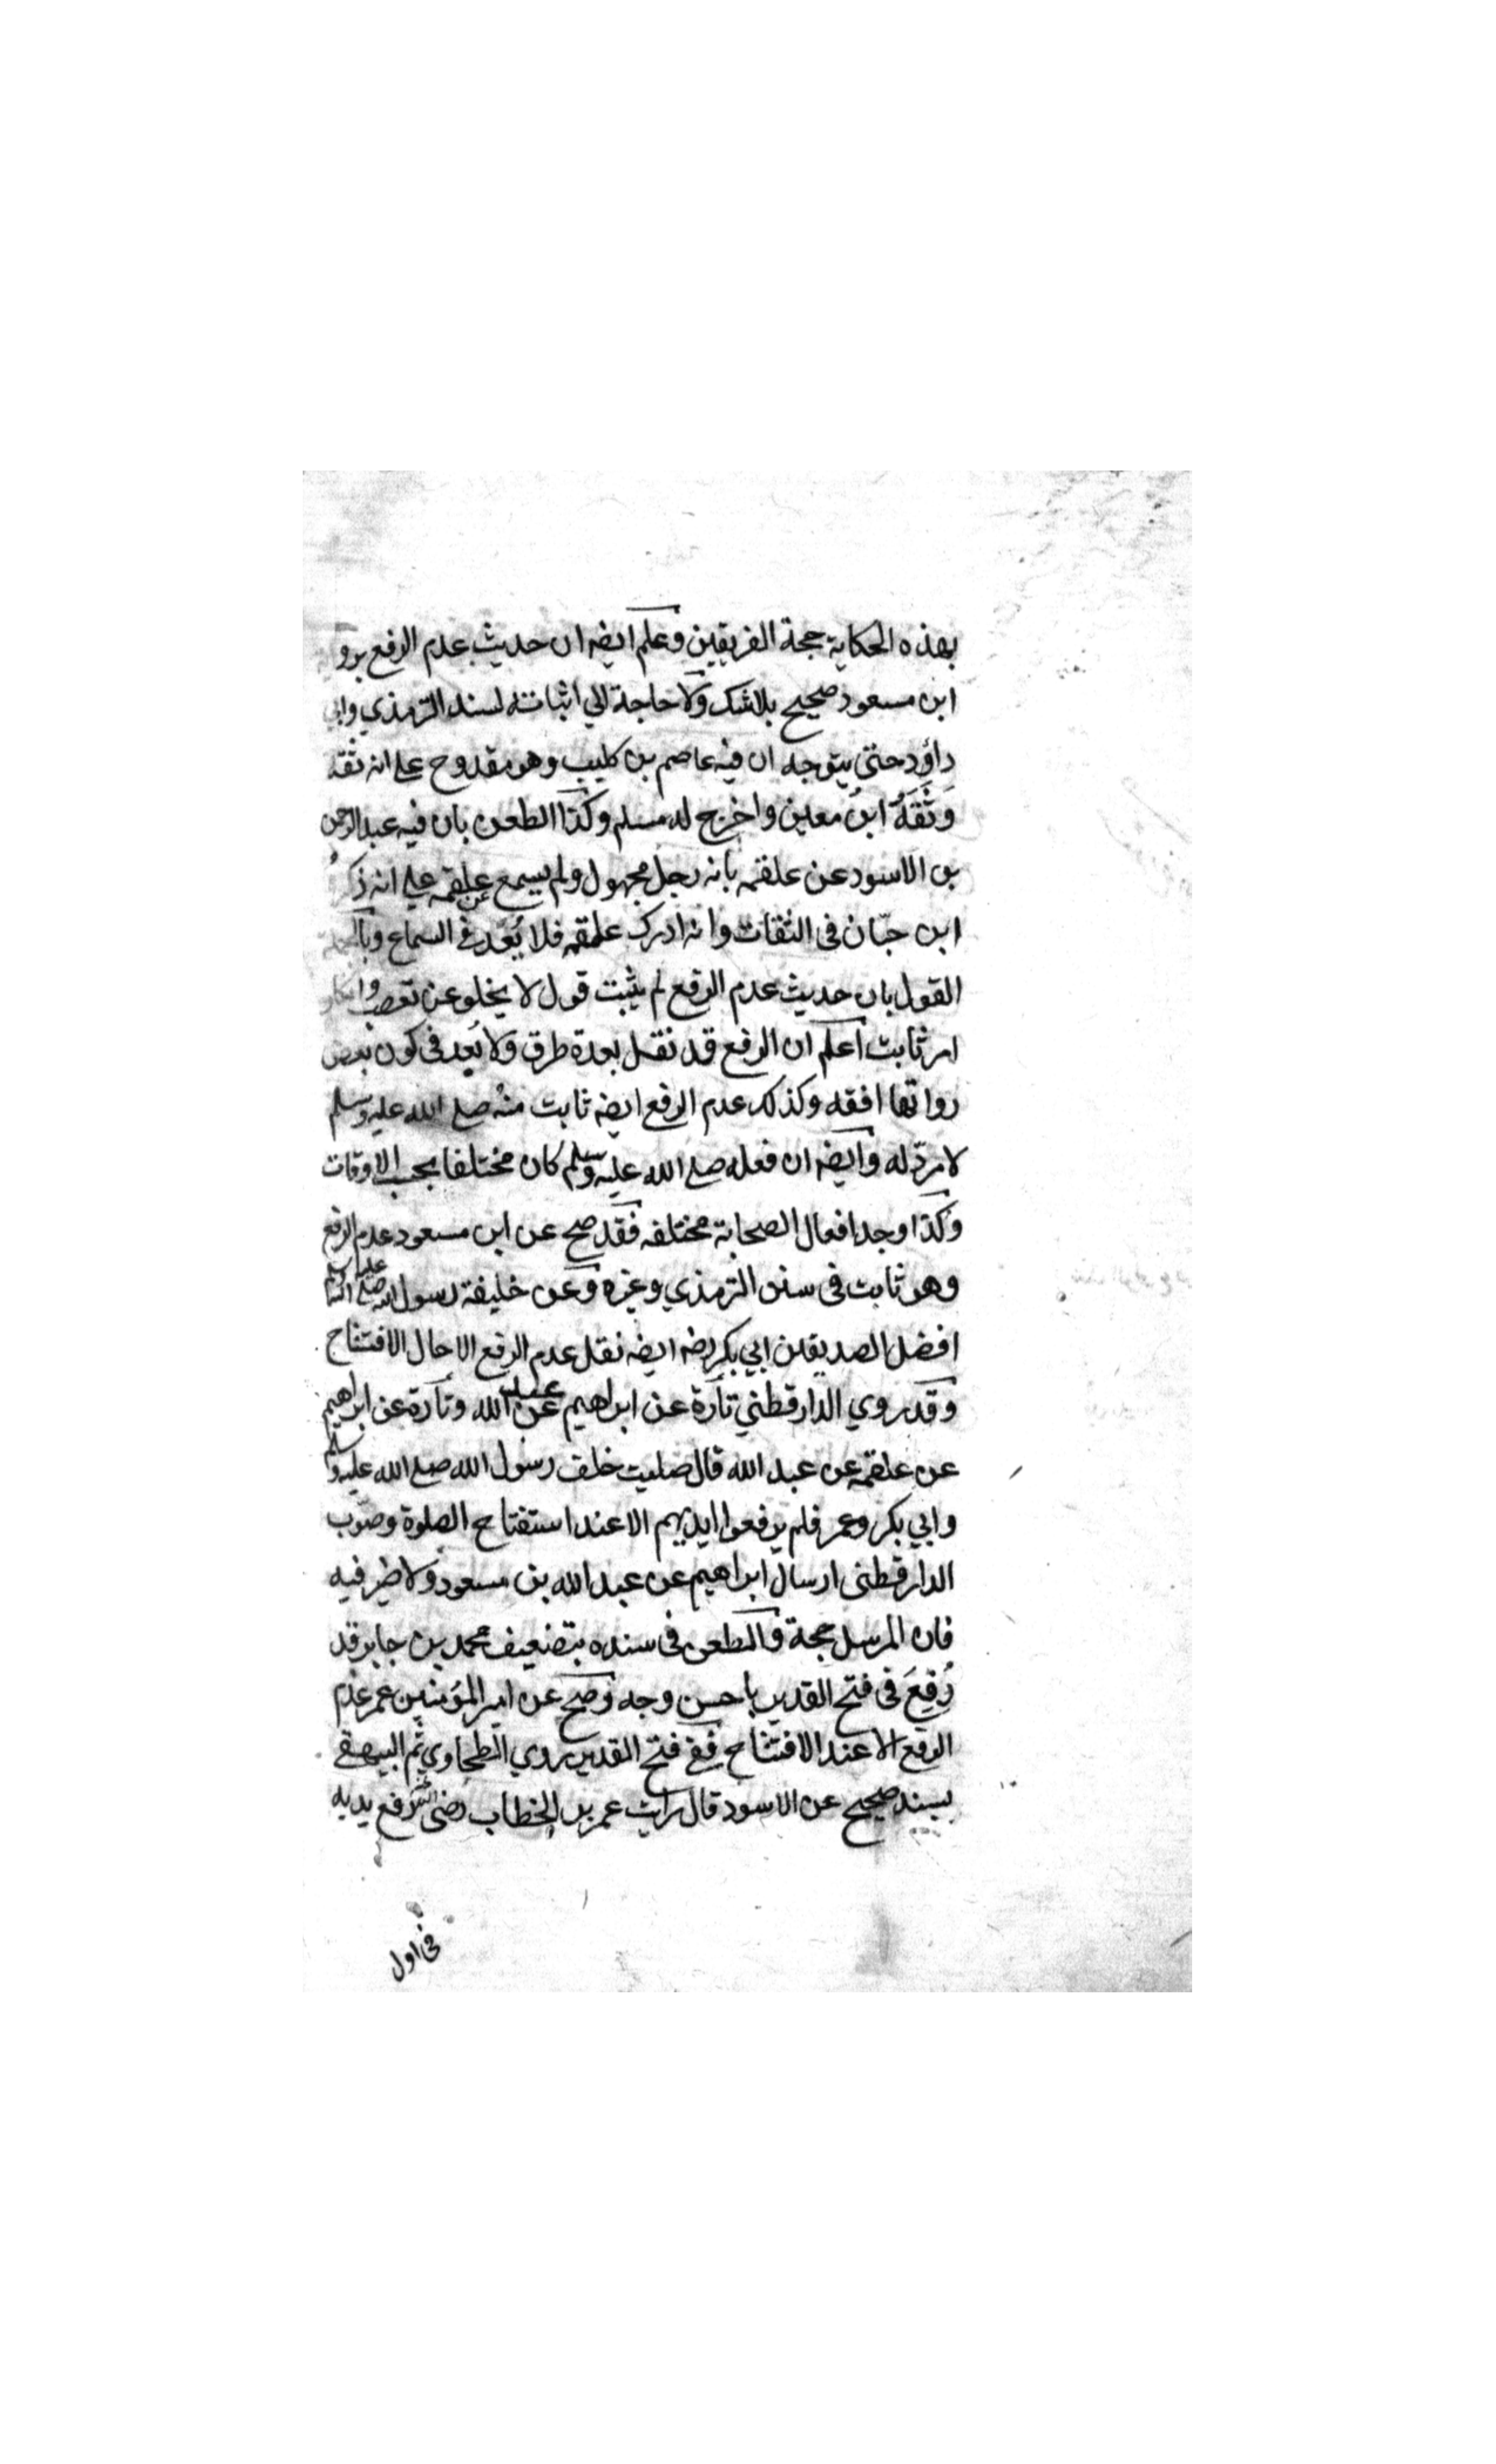 بهذه الحكاية حجة الفريقين وعلم ايضه ان حديث عدم الرفع برو
ابن مسعود صحيح بلاشك ولا حاجة الي اثباته لسند الترمذي وابي
داؤد حتى يتوجه ان فيه عاصم بن كليب وهو مقدوح علے انه ثقة
وَثَّقَهُ ابنُ معين واخرج له مسلم وكذا الطعن بان فيه عبد الرحمن
بن الاسود عن علقمه بانه رجل مجهول ولم يسمع عن علقمه علے انه ذكرُ
ابن حبّان فى الثقات وانه ادرك علمقه فلا بُعد فى السماع وبالجملة
القول بان حديث عدم الرفع لم يثبت قول لا يخلو عن تعصب وانكار
امر ثابت اعلم ان الرفع قد نقل بعدة طرق ولا بُعد فى كون بعض
رواتها افقه وكذلك عدم الرفع ايضه ثابت منه صلے الله عليه وسلم
لا مردّ له وايضه ان فعله صلے الله عليه وسلم كان مختلفا بحسب الاوقات
وكذا وجد افعال الصحابة مختلفه فقد صح عن ابن مسعود عدم الرفع
وهو ثابت فى سنن الترمذي وغيره وعن خليفة رسول الله صلے الله عليه وسلم
افضل الصديقين ابي بكر رضه ايضه نقل عدم الرفع الا حال الافتتاح
وقد روي الدارقطني تارة عن ابراهيم عن عبد الله وتارة عن ابراهيم
عن علقمه عن عبد الله قال صليت خلف رسول الله صلے الله عليه وسلم
وابي بكر وعمر فلم يرفعوا ايديهم الا عند استفتاح الصلوة وصوّب
الدارقطنى ارسال ابراهيم عن عبد الله بن مسعود ولا ضير فيه
فان المرسل حجة والطعن فى سنده بتضعيف محمد بن جابر قد
دُفِعَ فى فتح القدير باحسن وجه وصح عن امير المؤمنين عمر عدم
الرفع الا عند الافتتاح ففے فتح القدير روي الطحاوي ثم البيهقے
بسند صحيح عن الاسود قال رايت عمر بن الخطاب رضى الله عنه رفع يديه
فى اول